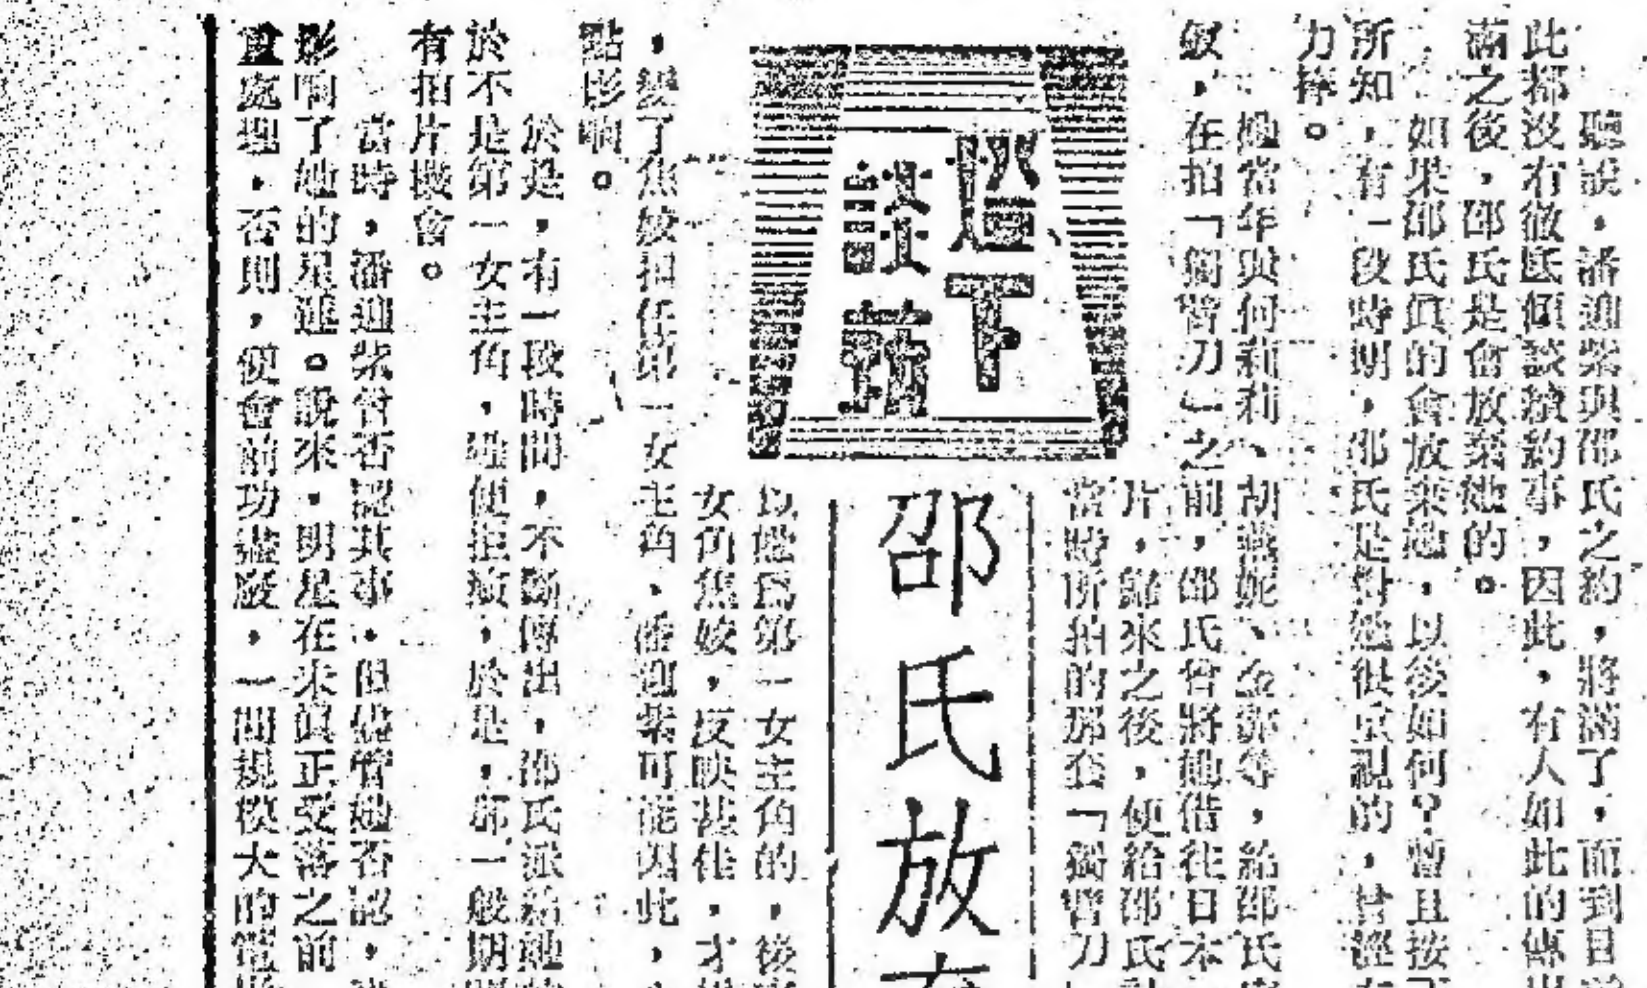 聽說，潘迎紫與邵氏之約，將滿了，而到目前
此都沒有徹底傾談續約事，因此，有人如此的傳出
滿之後，邵氏是會放棄她的。
如果邵氏眞的會放棄她，以後如何？暫且按下
所知，有一段時期，邵氏是對她很重視的，曾經
力捧。
她當年與何莉莉、胡燕妮、金霏等，給邵氏
叙，在拍「獨臂刀」之前，邵氏曾將她借往日本
片，歸來之後，便給邵氏
當時所拍的那套「獨臂刀
邵氏放
燈下談藝
以她爲第一女主角的，後
女角焦姣，反映甚佳，才
，變了焦姣担任第一女主角，潘迎紫可能因此，
點影响。
於是，有一段時間，不斷傳出，邵氏派給她
於不是第一女主角，她便推辭，於是，那一般期間
有拍片機會。
當時，潘迎紫曾否認其事，但儘管她否認，
影响了她的星運。說來，明星在未眞正受落之前
重處理，否則，便會前功盡廢，一間規模大的電影